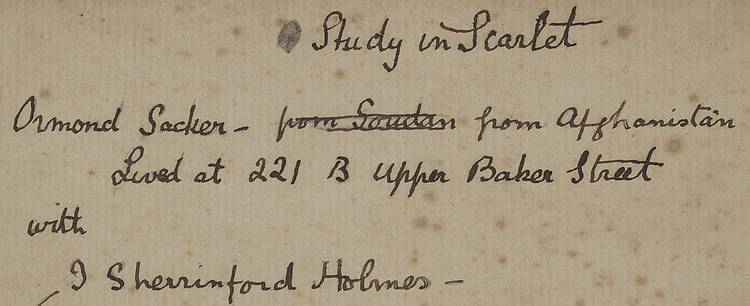 Study in Scarlet
Ormond Sacker - from Soudan from Afghanistan
Lived at 221 B Upper Baker Street
with
I Sherrinford Holmes -